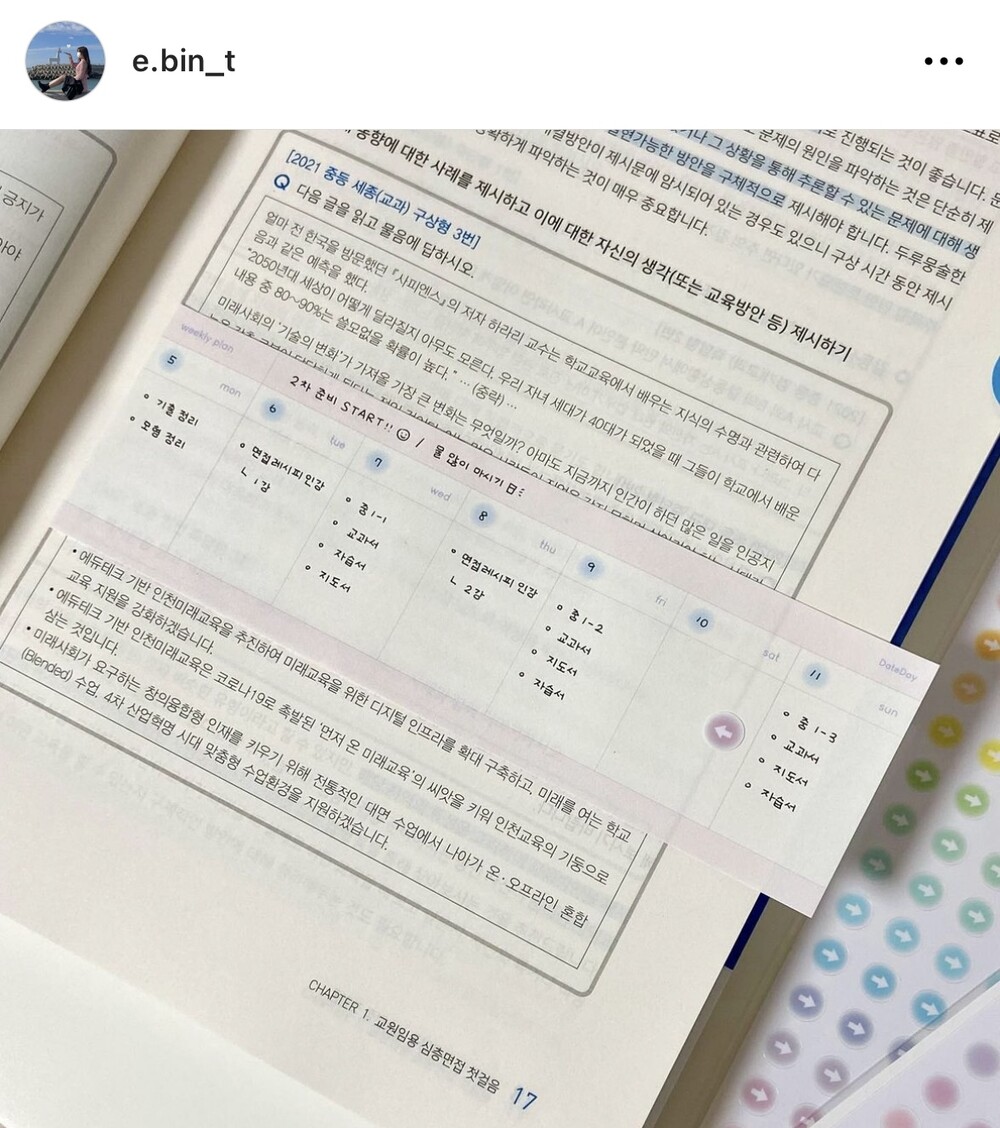 e.bin_t
동향에 대한 사례를 제시하고 이에 대한 자신의 생각(또는 교육방안 등) 제시하기
진행되는 것이 좋습니다. 문
문제의 원인을 파악하는 것은 단순히 제
그 상황을 통해 추론할 수 있는 문제에 대해 생
방안을 구체적으로 제시해야 합니다. 두루뭉술한
제시문에 암시되어 있는 경우도 있으니 구상 시간 동안 제시
파악하는 것이 매우 중요합니다.
[2021 중등 세종(교과) 구상형 3번]
Q 다음 글을 읽고 물음에 답하시오.
얼마 전 한국을 방문했던 『사피엔스』의 저자 하라리 교수는 학교교육에서 배우는 지식의 수명과 관련하여 다
음과 같은 예측을 했다.
"2050년대 세상이 어떻게 달라질지 아무도 모른다. 우리 자녀 세대가 40대가 되었을 때 그들이 학교에서 배운
내용 중 80~90%는 쓸모없을 확률이 높다." … (중략) …
미래사회의 '기술의 변화'가 가져올 가장 큰 변화는 무엇일까? 아마도 지금까지 인간이 하던 많은 일을 인공지
weekly plan
2차 준비 START!! / 물 많이 마시기
DateDay
5 mon
◦ 기출 정리
◦ 모형 정리
6 tue
◦ 면접레시피 인강
ㄴ 1강
7 wed
◦ 중1-1
◦ 교과서
◦ 자습서
◦ 지도서
8 thu
◦ 면접레시피 인강
ㄴ 2강
9 fri
◦ 중1-2
◦ 교과서
◦ 지도서
◦ 자습서
10 sat
11 sun
◦ 중1-3
◦ 교과서
◦ 지도서
◦ 자습서
• 에듀테크 기반 인천미래교육을 추진하여 미래교육을 위한 디지털 인프라를 확대 구축하고, 미래를 여는 학교
교육 지원을 강화하겠습니다.
• 에듀테크 기반 인천미래교육은 코로나19로 촉발된 '먼저 온 미래교육'의 씨앗을 키워 인천교육의 기둥으로
삼는 것입니다.
• 미래사회가 요구하는 창의융합형 인재를 키우기 위해 전통적인 대면 수업에서 나아가 온·오프라인 혼합
(Blended) 수업, 4차 산업혁명 시대 맞춤형 수업환경을 지원하겠습니다.
CHAPTER 1. 교원임용 심층면접 첫걸음 17